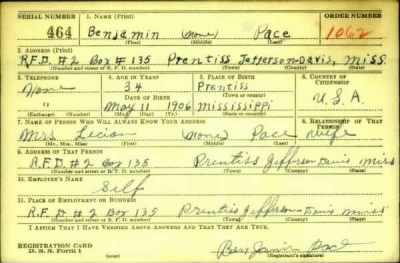 SERIAL NUMBER 1. NAME (Print) ORDER NUMBER
464 Benjamin (None) Pace 1062
(First) (Middle) (Last)
2. ADDRESS (Print)
R.F.D. #2 Box #135 Prentiss Jefferson-Davis, Miss.
(Number and street or R. F. D. number) (Town) (County) (State)
3. TELEPHONE 4. AGE IN YEARS 5. PLACE OF BIRTH 6. COUNTRY OF CITIZENSHIP
None 34 Prentiss
DATE OF BIRTH (Town or county) U.S.A.
May 11 1906 Mississippi
(Exchange) (Number) (Mo.) (Day) (Yr.) (State or country)
7. NAME OF PERSON WHO WILL ALWAYS KNOW YOUR ADDRESS 8. RELATIONSHIP OF THAT PERSON
Mrs. (None) Pace Wife
(Mr., Mrs., Miss) (First) (Middle) (Last)
9. ADDRESS OF THAT PERSON
R.F.D. #2 Box 135 Prentiss Jefferson Davis Miss
(Number and street or R. F. D. number) (Town) (County) (State)
10. EMPLOYER'S NAME
Self
11. PLACE OF EMPLOYMENT OR BUSINESS
R.F.D. #2 Box 135 Prentiss Jefferson Davis Miss
(Number and street or R. F. D. number) (Town) (County) (State)
I AFFIRM THAT I HAVE VERIFIED ABOVE ANSWERS AND THAT THEY ARE TRUE.
REGISTRATION CARD
D. S. S. Form 1 Benjamin Pace
(Registrant's signature)